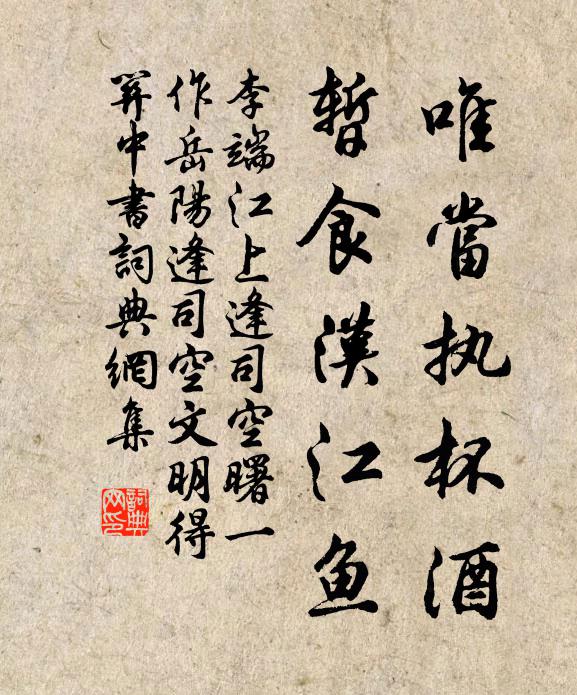 唯當执杯酒
暫食漢江鱼
李端江上逢司空曙一
作岳陽逢司空文明得
笄中書詞典網集
詞典
网印